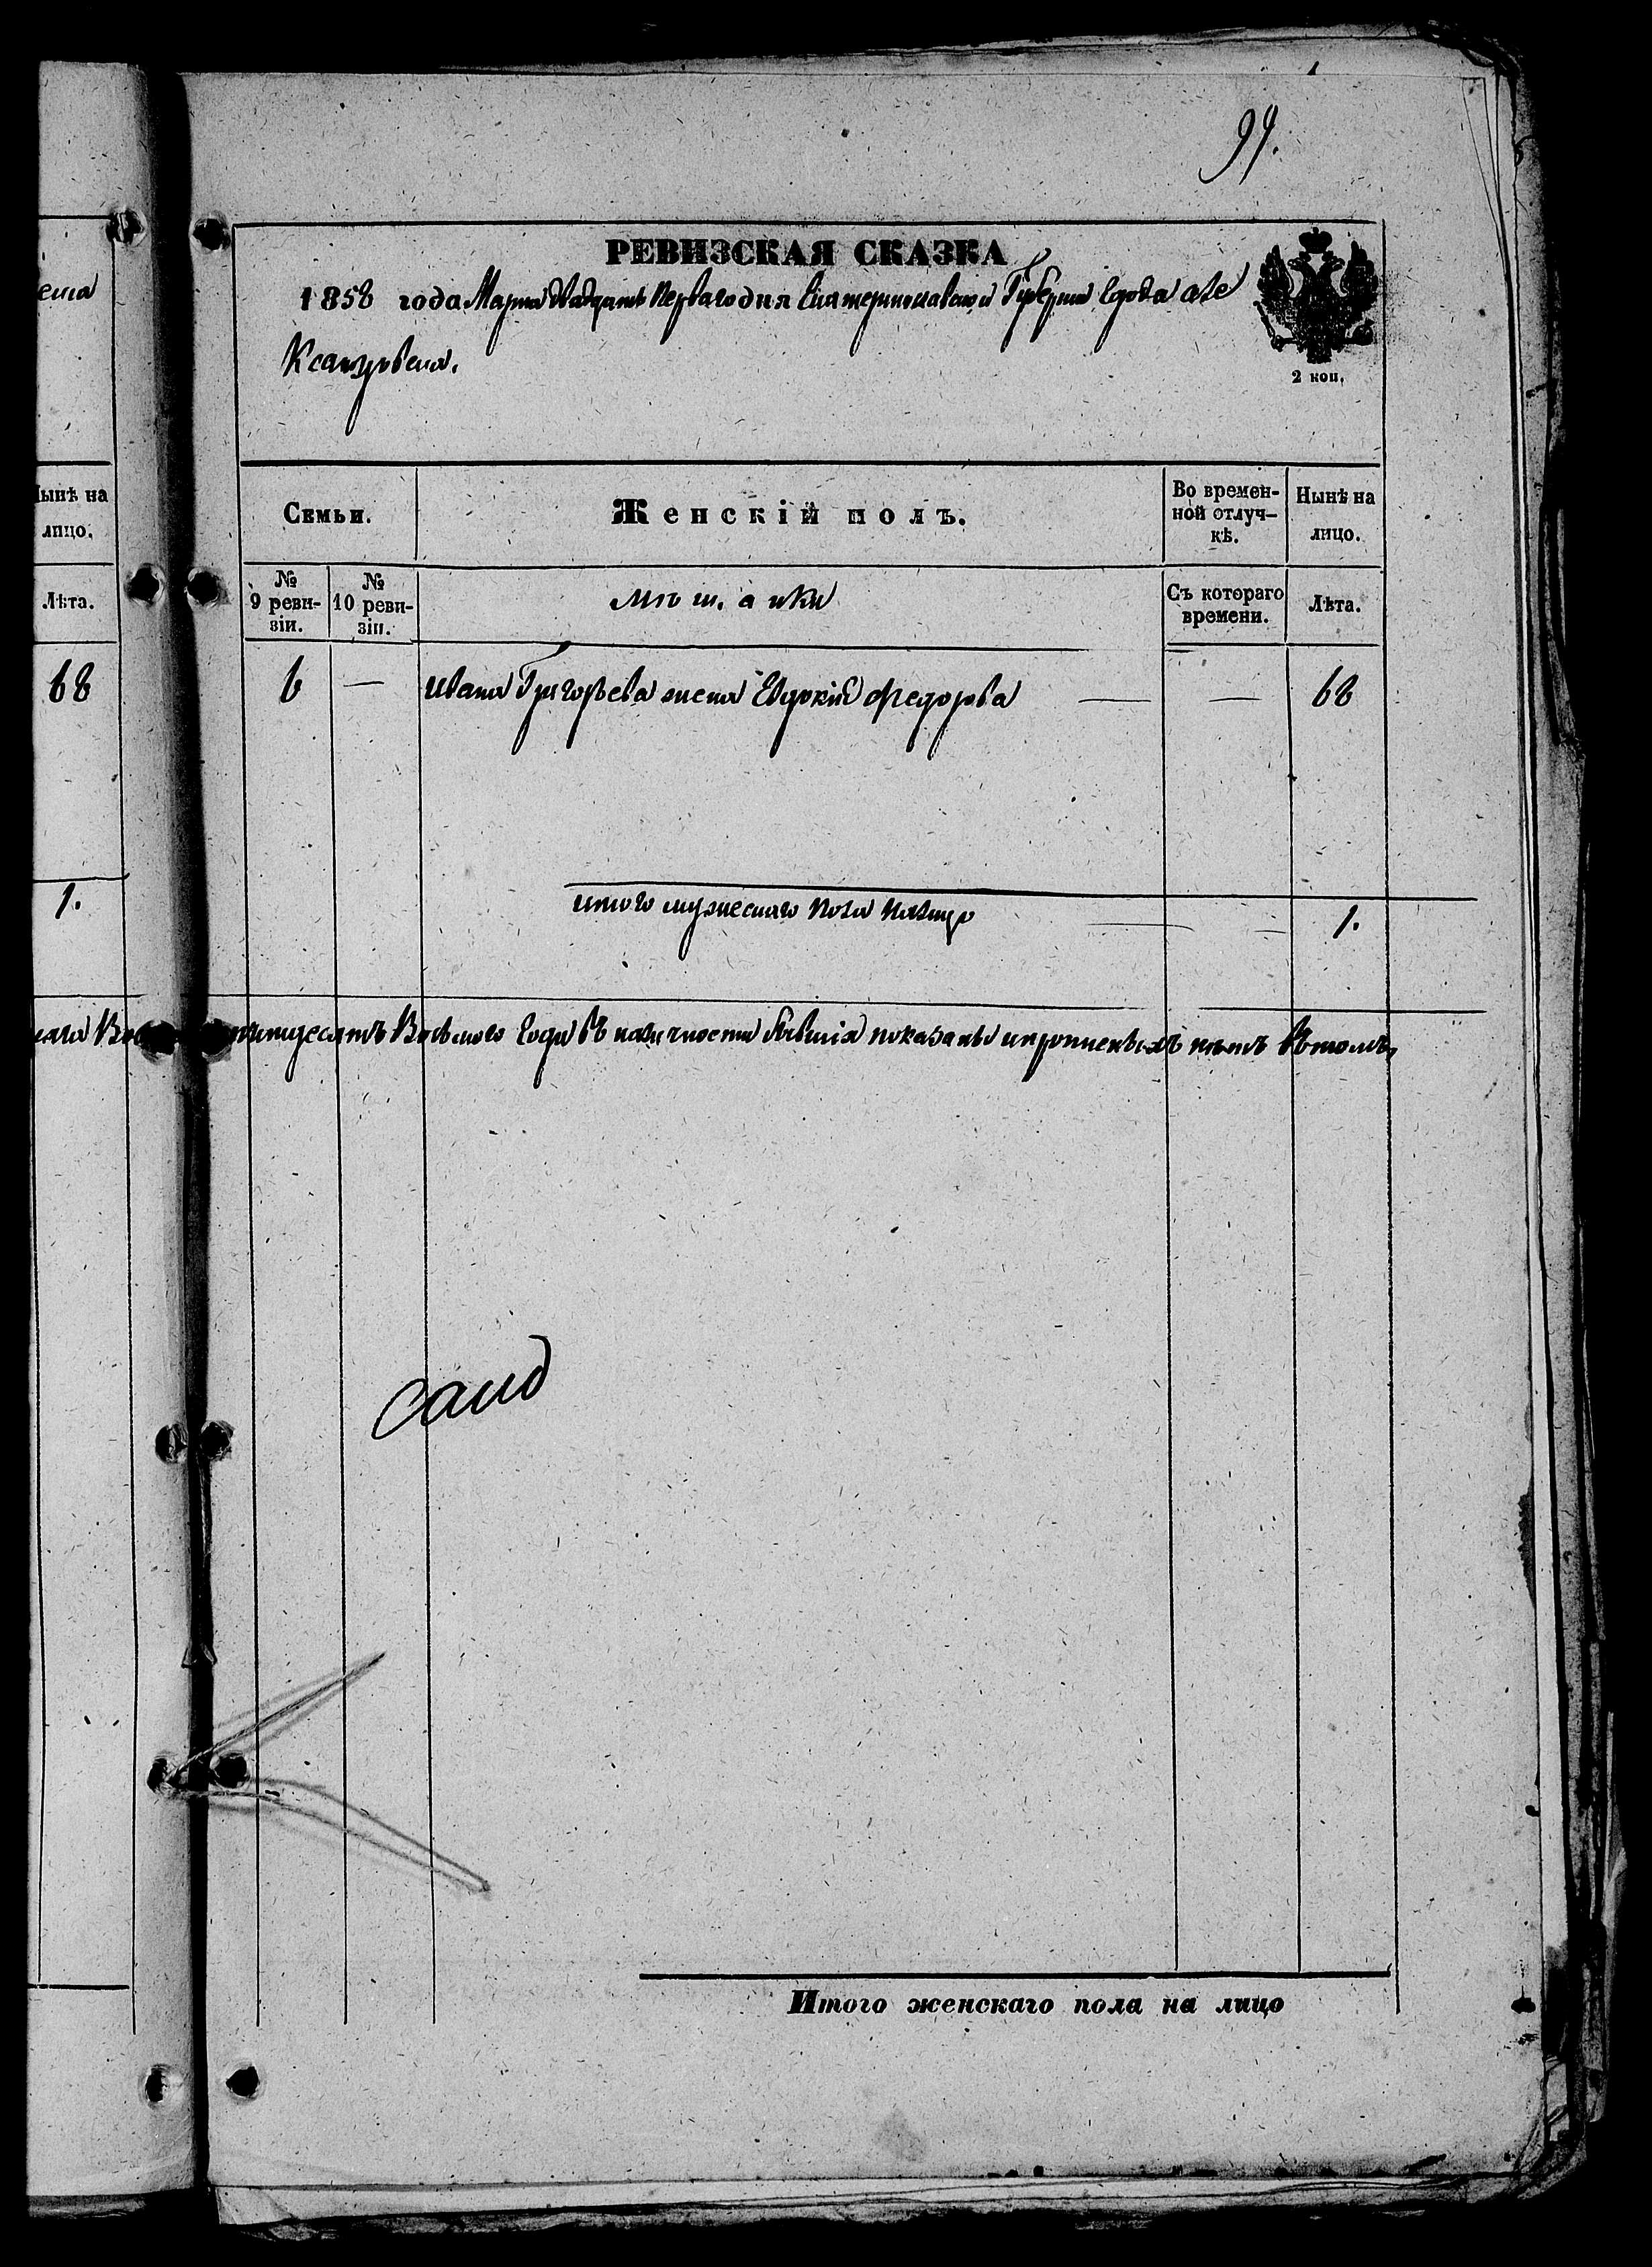 99.
РЕВИЗСКАЯ СКАЗКА
1858 года Марта двадцать первагодня Екатеринославской Губерніи города але
Ксандровска.
2 коп.
еща
Нынѣ на
лицо.
Лѣта.
68
1.
Семьи.
Женскій полъ.
Во времен-
ной отлуч-
кѣ.
Нынѣ на
лицо.
№
9 реви-
зіи.
№
10 реви-
зіи.
мѣщанки
Съ котораго
времени.
Лѣта.
6 — Ивана Григорьева жена Евдокия Федорова — — 68
итого мужескаго пола налицо — — 1.
пятидесятъ Восьмого года въ наличности бывшія показаны ипропискныхъ нѣтъ вътомъ,
саид
Итого женскаго пола на лицо